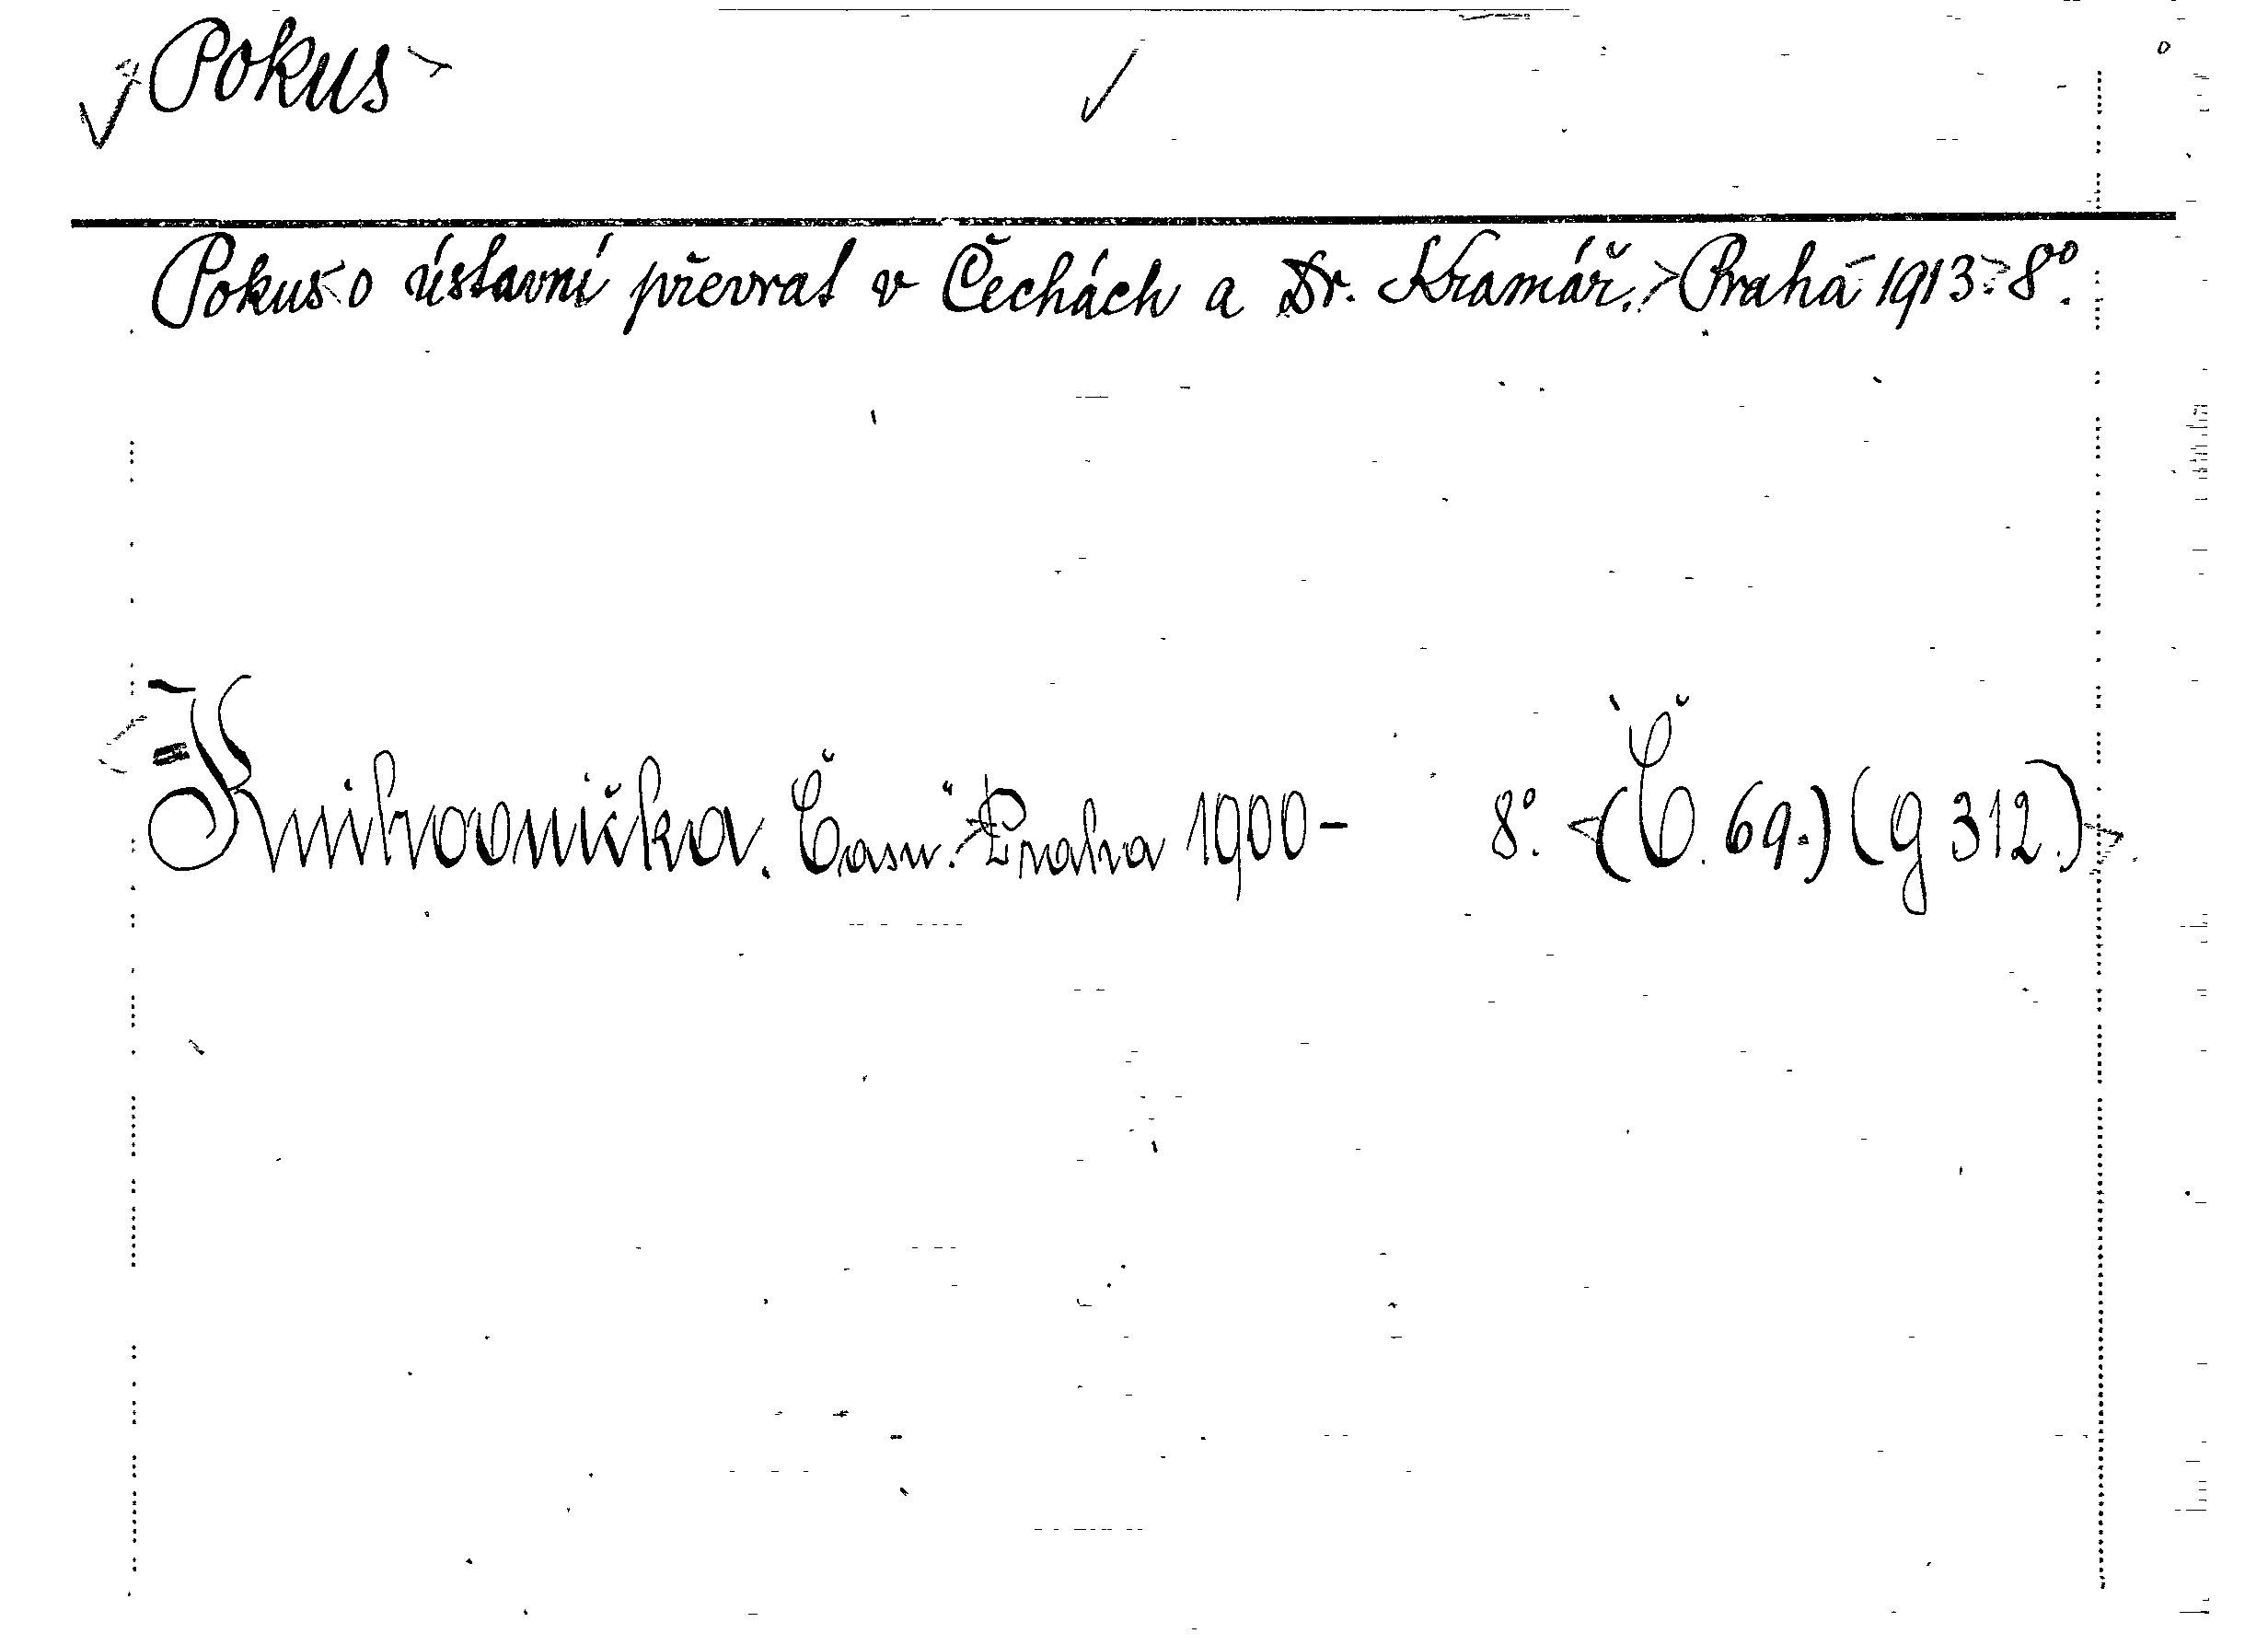 Pokus
Pokus o ústavní převrat v Čechách a Dr. Kramář. Praha 1913. 8°.
Knihovnička. Času. Praha 1900- 8°. (Č. 69.) (g 312.)